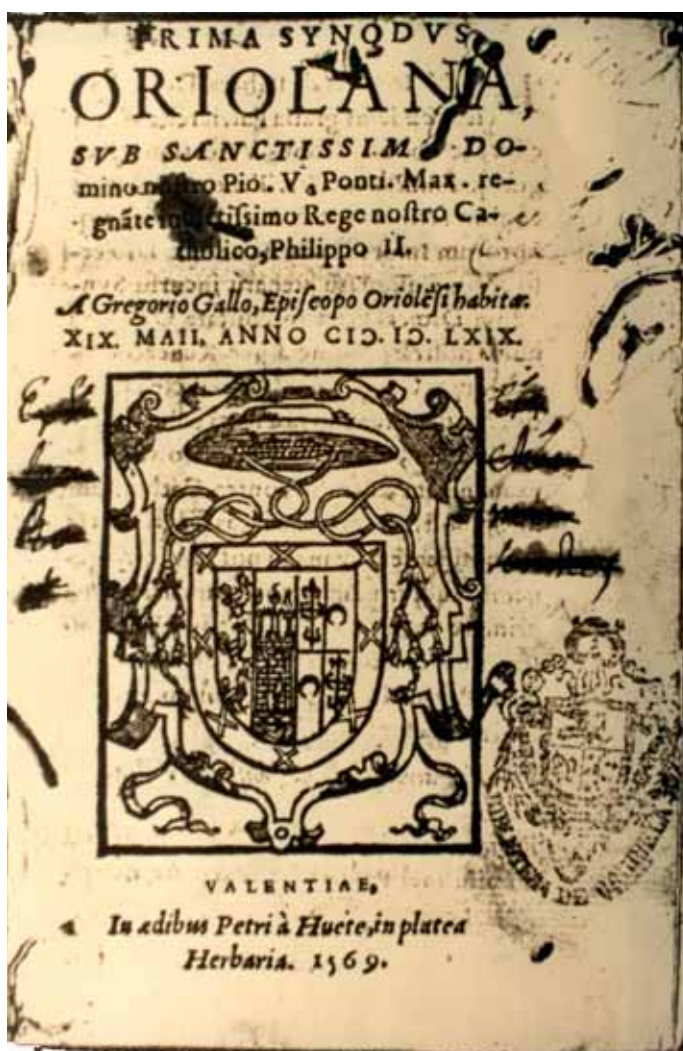 PRIMA SYNODVS
ORIOLANA,
SVB SANCTISSIMO DO-
mino nostro Pio. V. Ponti. Max. re-
gnāte inuictissimo Rege nostro Ca-
tholico, Philippo II.
A Gregorio Gallo, Episcopo Oriolēsi habita.
XIX. MAII. ANNO CIↃ. IↃ. LXIX.
VALENTIAE,
In ædibus Petri à Huete, in platea
Herbaria. 1569.
BIBLIOTECA DE